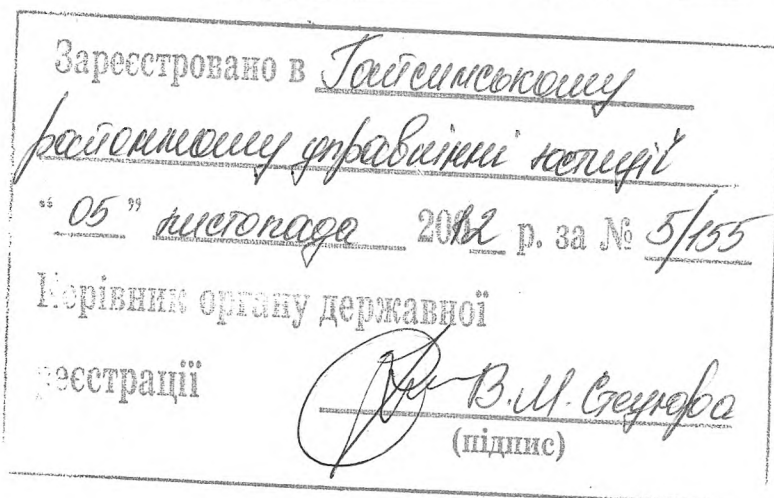 Зареєстровано в Гайсинському
районному управлінні юстиції
“05” листопада 2012 р. за № 5/155
Керівник органу державної
реєстрації
В.М.
(підпис)